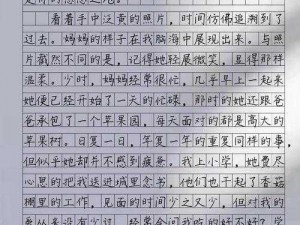 看着手中泛黄的照片，时间仿佛追溯到了
过去。妈妈的样子在我脑海中展现出来。与照
片截然不同的是，记得她轻展微笑，显得那样
温柔。少时，妈妈经常很忙，几乎早上一起来
她便已经开始了一天的忙碌，那时的她还跟爸
爸承包了一个苹果园，每天面对的都是高大的
苹果树。日复一日，年复一年的重复同样的事，
但似乎她却并不感到疲惫。我上小学，她费尽
心思的把我送进城里念书，他们也干起了香菇
棚里的工作，见面的时间少之又少，但对我的